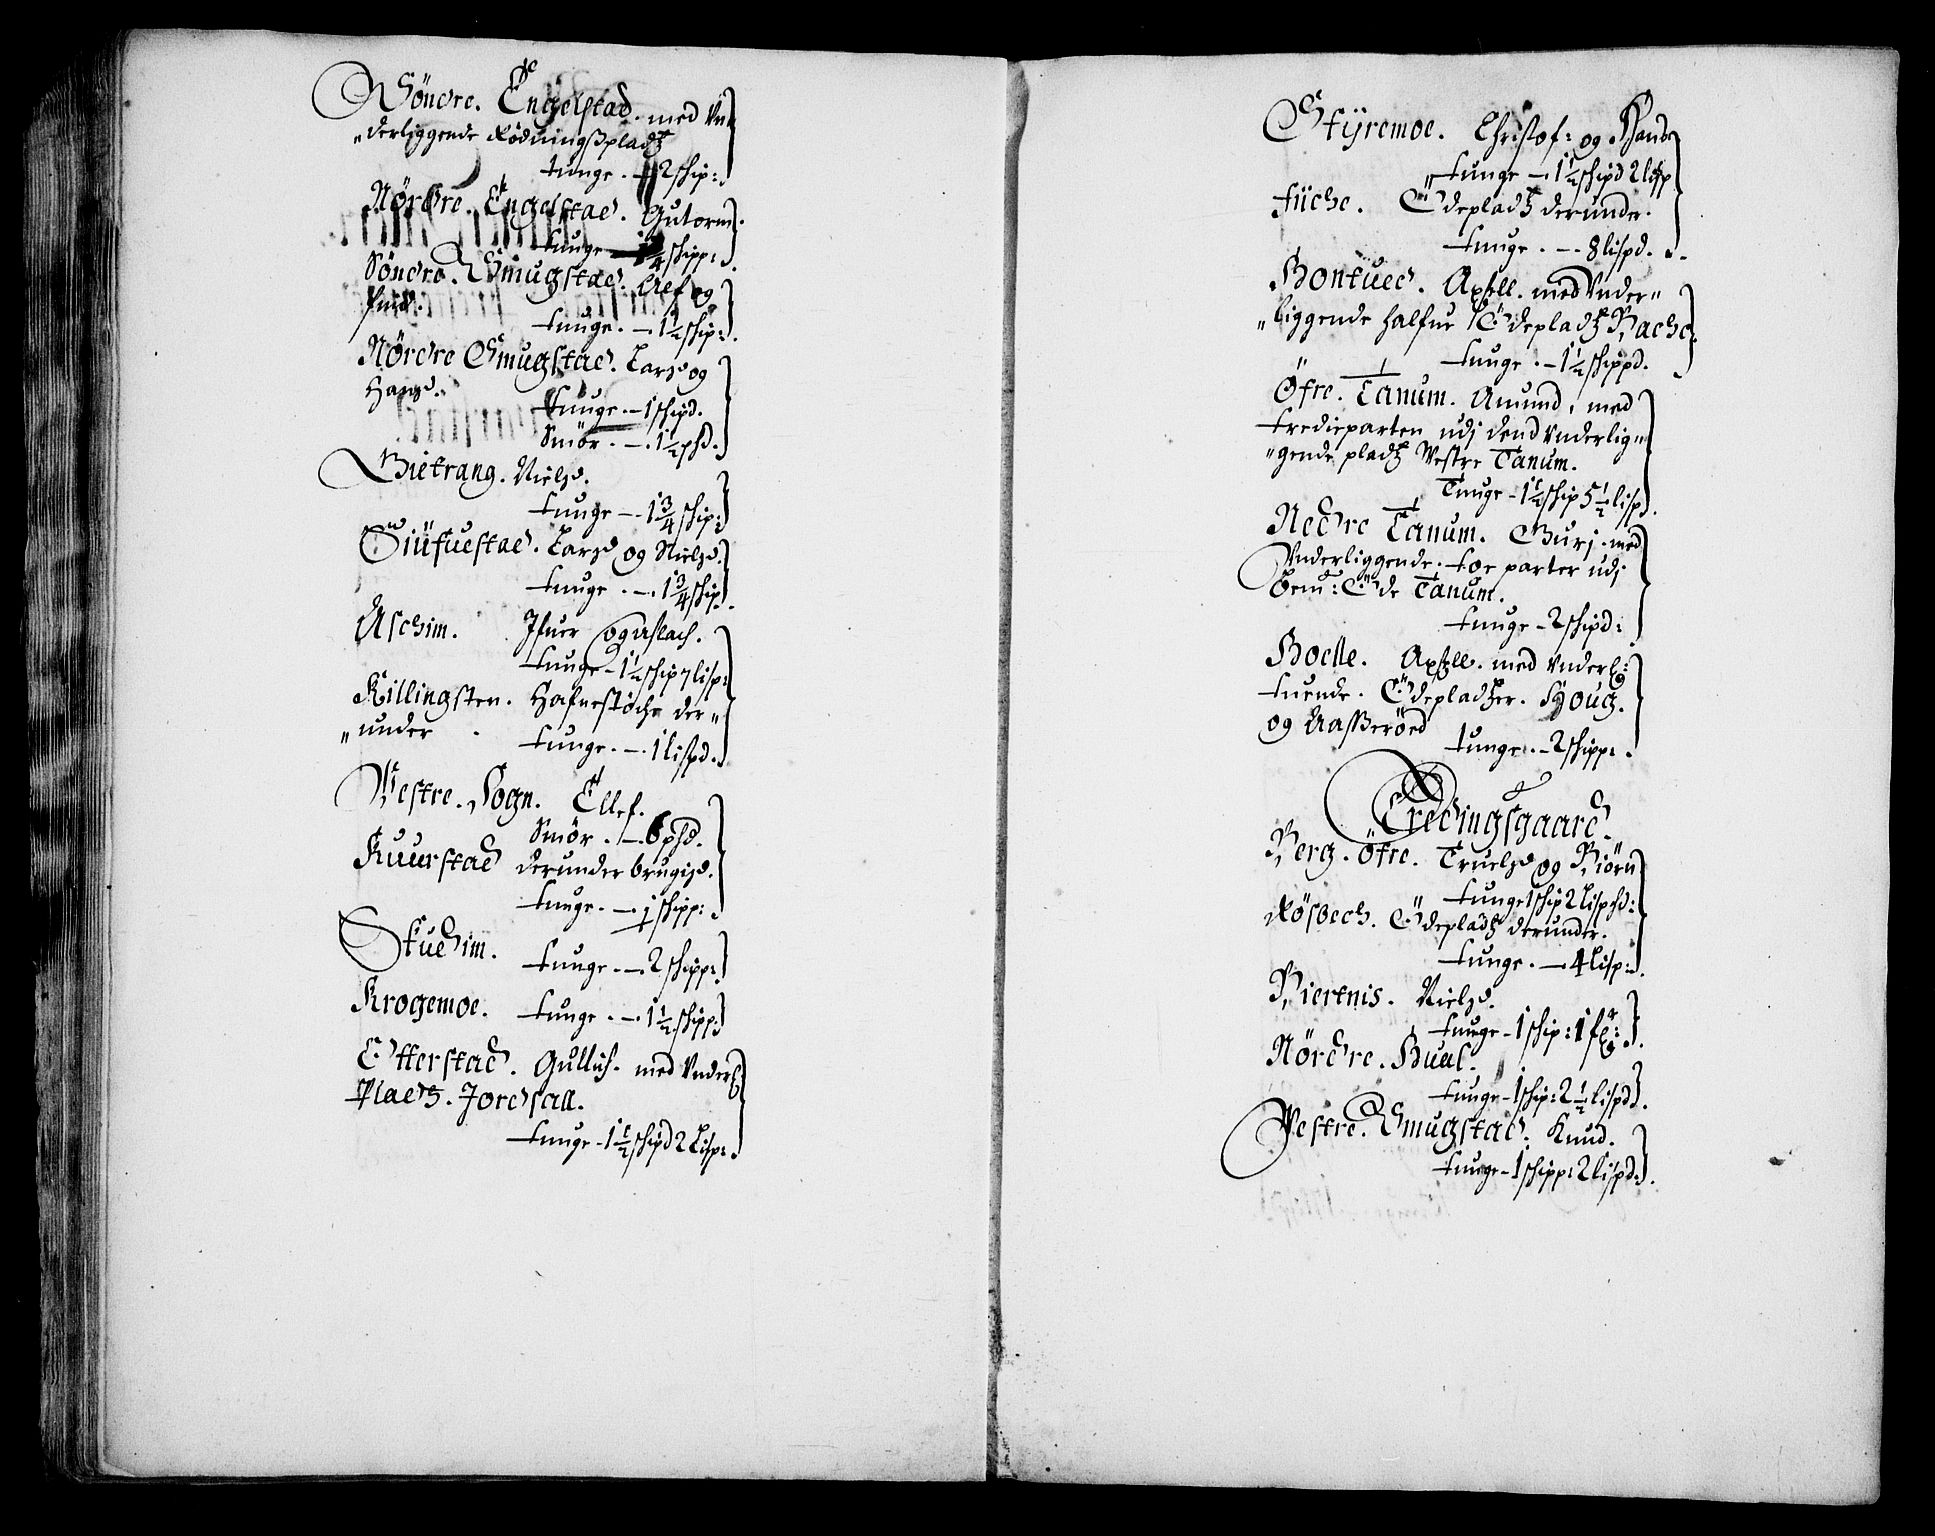 Söndre. Engelstad. med Vn„
„derliggende Rödningspladtz
tunge. — 2 schip:
Nördre. Engelstad. Gutorm.
tunge — ¼ schipp:
Söndre. Smugstad. Elef og
Knud.
tunge. — 1½ schip:
Nördre Smugstad. Larss og
Hanss.
tunge. — 1 schipd.
Smör. — 1½ phd.
Bietrang. Nielss.
tunge — 1¾ schip:
Siüfuestad. Larss og Nielss.
tunge. — 1¾ schip.
Aschim. Ifuer og Aslach.
tunge - 1½ schip 7 lisp:
Killingsten. Hafnestöche der„
„under
tunge. — 1 lispd.
Vestre. Sogn. Ellef.
Smör. — 6 phd.
Kuurstad derunder brugiss.
tunge. — 1 schipp:
Stuehim. tunge. — 2 schipp:
Krogemoe. tunge. — 1½ schipp:
Etterstad. Gullich. med Vnderl:
Plads. Jordfall.
tunge - 1½ schipd 2 Lisp:
Styremoe. Christof: og Hands
tunge — 1½ schipd 2 lisp
Füche. Ödepladtz derunder.
tunge. — 8 lispd.
Bontued. Axsell. med Vnder„
„liggende halfue Ödepladtz Bache.
tunge. — 1½ schippd.
Öfre. Tanum. Amund. med
tredieparten udj dend Vnderlig„
„gende pladtz Vestre Tanum.
Tunge - 1½ schip 5½ lisp.
Nedre Tanum. Gurj. med
Vnderliggende. toe parter udj
bem: Öde Tanum.
tunge - 2 schipd:
Boelle. Axsell. med Vnderl:
tuende. Ödepladtzer. Houg.
og Aasserörd
tunge. - 2 schipp:
Ördingsgaard.
Berg. Öfre. Truelss og Biörn
tunge 1 schip 2 Lispd:
Rösbech. Ödepladtz derunder.
tunge. — 4 Lisp:
Biertnis. Nielss.
tunge - 1 schip: 1 f:
Nördre. Buul.
tunge - 1 schip: 2½ lispd.
Vestre. Smugstad. Knud.
tunge - 1 schipp: 2 lispd: